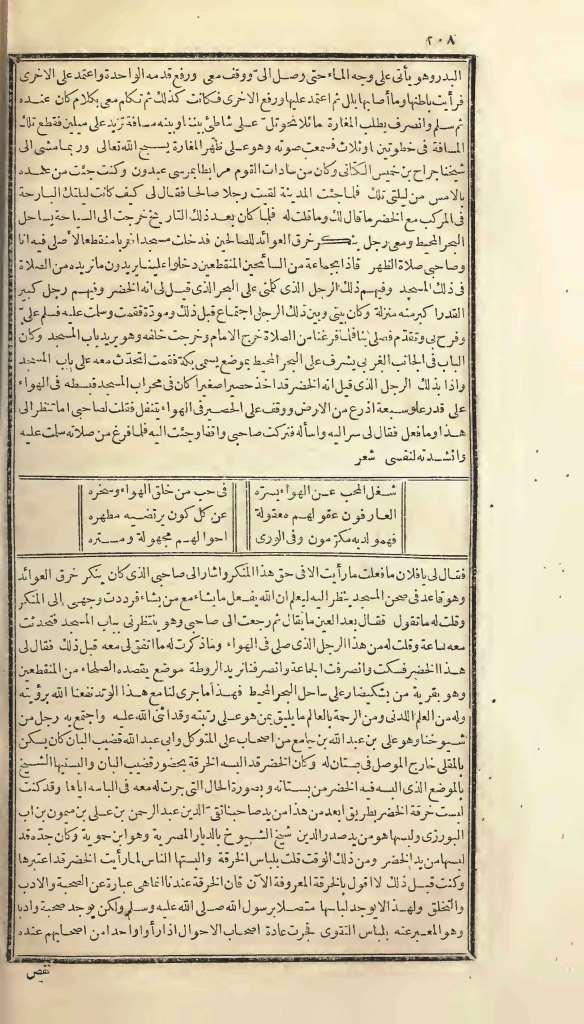 ٢٠٨
البدر وهو يأتى على وجه الماء حتى وصل الىّ ووقف معى ورفع قدمه الواحدة واعتمد على الاخرى
فرأيت باطنها وما أصابها بلل ثم اعتمد عليها ورفع الاخرى فكانت كذلك ثم تكلم معى بكلام كان عنده
ثم سلم وانصرف يطلب المغارة مائلا نحو تل على شاطئ بيننا وبينه مسافة تزيد على ميلين فقطع تلك
المسافة فى خطوتين او ثلاث فسمعت صوته وهو على ظهر المغارة يسبح الله تعالى وربما مشى الى
شيخنا جراح بن خميس الكتانى وكان من سادات القوم مرابطا بمرسى عيدون وكنت جئت من عنده
بالامس من ليلتى تلك فلما جئت المدينة لقيت رجلا صالحا فقال لى كيف كانت ليلتك البارحة
فى المركب مع الخضر ما قال لك وما قلت له فلما كان بعد ذلك التاريخ خرجت الى السياحة بساحل
البحر المحيط ومعى رجل ينكر خرق العوائد للصالحين فدخلت مسجدا خربا منقطعا لأصلى فيه انا
وصاحبى صلاة الظهر فاذا بجماعة من السائحين المنقطعين دخلوا علينا يريدون ما نريده من الصلاة
فى ذلك المسجد وفيهم ذلك الرجل الذى كلمنى على البحر الذى قيل لى انه الخضر وفيهم رجل كبير
القدر اكبر منه منزلة وكان بينى وبين ذلك الرجل اجتماع قبل ذلك ومودة فقمت وسلمت عليه فسلم علىّ
وفرح بى وتقدم فصلى بنا فلما فرغنا من الصلاة خرج الامام وخرجت خلفه وهو يريد باب المسجد وكان
الباب فى الجانب الغربى يشرف على البحر المحيط بموضع يسمى بكة فقمت اتحدث معه على باب المسجد
واذا بذلك الرجل الذى قيل انه الخضر قد اخذ حصيرا صغيرا كان فى محراب المسجد فبسطه فى الهواء
على قدر علو سبعة اذرع من الارض ووقف على الحصير فى الهواء يتنفل فقلت لصاحبى اما تنظر الى
هذا وما فعل فقال لى سر اليه واسأله فتركت صاحبى واقفا وجئت اليه فلما فرغ من صلاته سلمت عليه
وانشدته لنفسى شعر
شغل المحب عن الهواء بسرّه فى حب من خلق الهواء وسخره
العارفون عقولهم معقولة عن كل كون يرتضيه مطهره
فهمو لديه مكرمون وفى الورى احوالهم مجهولة ومستره
فقال لى يا فلان ما فعلت ما رأيت الا فى حق هذا المنكر واشار الى صاحبى الذى كان ينكر خرق العوائد
وهو قاعد فى صحن المسجد ينظر اليه ليعلم ان الله يفعل ما يشاء مع من يشاء فرددت وجهى الى المنكر
وقلت له ما تقول فقال بعد العين ما يقال ثم رجعت الى صاحبى وهو ينتظرنى بباب المسجد فتحدثت
معه ساعة وقلت له من هذا الرجل الذى صلى فى الهواء وما ذكرت له ما اتفق لى معه قبل ذلك فقال لى
هذا الخضر فسكت وانصرفت الجماعة وانصرفنا نريد الروطة موضع يقصده الصلحاء من المنقطعين
وهو بقرية من بشكنصار على ساحل البحر المحيط فهذا ما جرى لنا مع هذا الوتد نفعنا الله برؤيته
وله من العلم اللدنى ومن الرحمة بالعالم ما يليق بمن هو على رتبته وقد اثنى الله عليه واجتمع به رجل من
شيوخنا وهو على بن عبد الله بن جامع من اصحاب على المتوكل وابى عبد الله قضيب البان كان يسكن
بالمقلى خارج الموصل فى بستان له وكان الخضر قد البسه الخرقة بحضور قضيب البان والبسنيها الشيخ
بالموضع الذى البسه فيه الخضر من بستانه وبصورة الحال التى جرت له معه فى الباسه اياها وقد كنت
لبست خرقة الخضر بطريق ابعد من هذا من يد صاحبنا تقى الدين عبد الرحمن بن على بن ميمون بن اب
البوزرى ولبسها هو من يد صدر الدين شيخ الشيوخ بالديار المصرية وهو ابن حموية وكان جده قد
لبسها من يد الخضر ومن ذلك الوقت قلت بلباس الخرقة والبستها الناس لما رأيت الخضر قد اعتبرها
وكنت قبل ذلك لا اقول بالخرقة المعروفة الآن فان الخرقة عندنا انما هى عبارة عن الصحبة والادب
والتخلق ولهذا لا يوجد لباسها متصلا برسول الله صلى الله عليه وسلم ولكن يوجد صحبة وادبا
وهو المعبر عنه بلباس التقوى فجرت عادة اصحاب الاحوال اذا رأوا واحدا من اصحابهم عنده
نقص